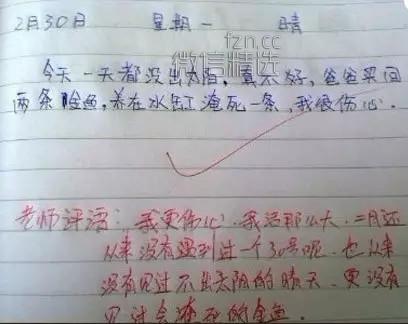 2月30日 星期一 晴
fzn.cc
微信精选
今天一天都没出太阳,真不好,爸爸买回
两条金鱼,养在水缸淹死一条,我很伤心。
老师评语:我更伤心,我活那么大,二月还
从来没有遇到过一个30号呢,也从来
没有见过不出太阳的晴天,更没有
见过会淹死的金鱼。